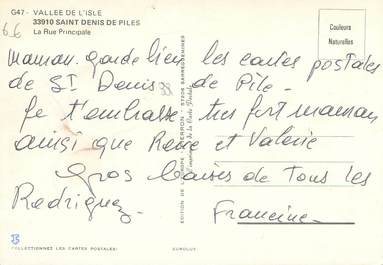 G47 - VALLEE DE L'ISLE
33910 SAINT DENIS DE PILES
La Rue Principale
Couleurs
Naturelles
66
Maman. garde bien les cartes postales
de St Denis de Pile.
Je t'embrasse très fort maman
ainsi que René et Valérie
Gros baisers de Tous les
Rodriguez. Francine.
EDITION DE L'EUROPE PIERRON 57206 SARREGUEMINES
COLLECTIONNEZ LES CARTES POSTALES
EUROLUX